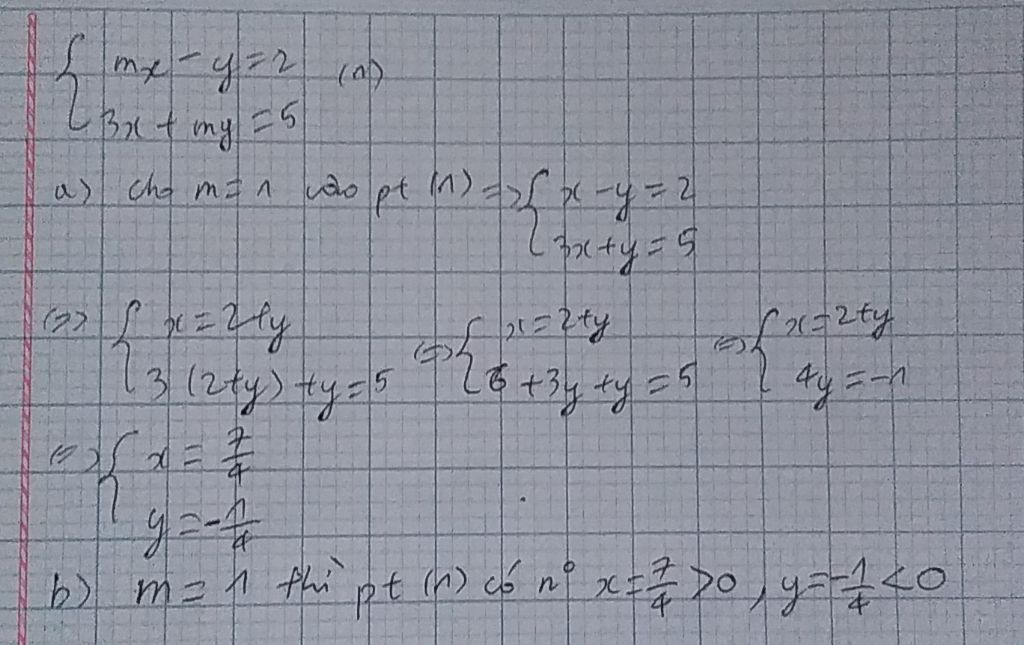 { mx - y = 2 (1)
{ 3x + my = 5
a) cho m = 1 vào pt (1) => { x - y = 2
{ 3x + y = 5
<=> { x = 2 + y <=> { x = 2 + y <=> { x = 2 + y
{ 3 (2+y) + y = 5 { 6 + 3y + y = 5 { 4y = -1
<=> { x = 7/4
{ y = -1/4
b) m = 1 thì pt (1) có nº x = 7/4 > 0, y = -1/4 < 0